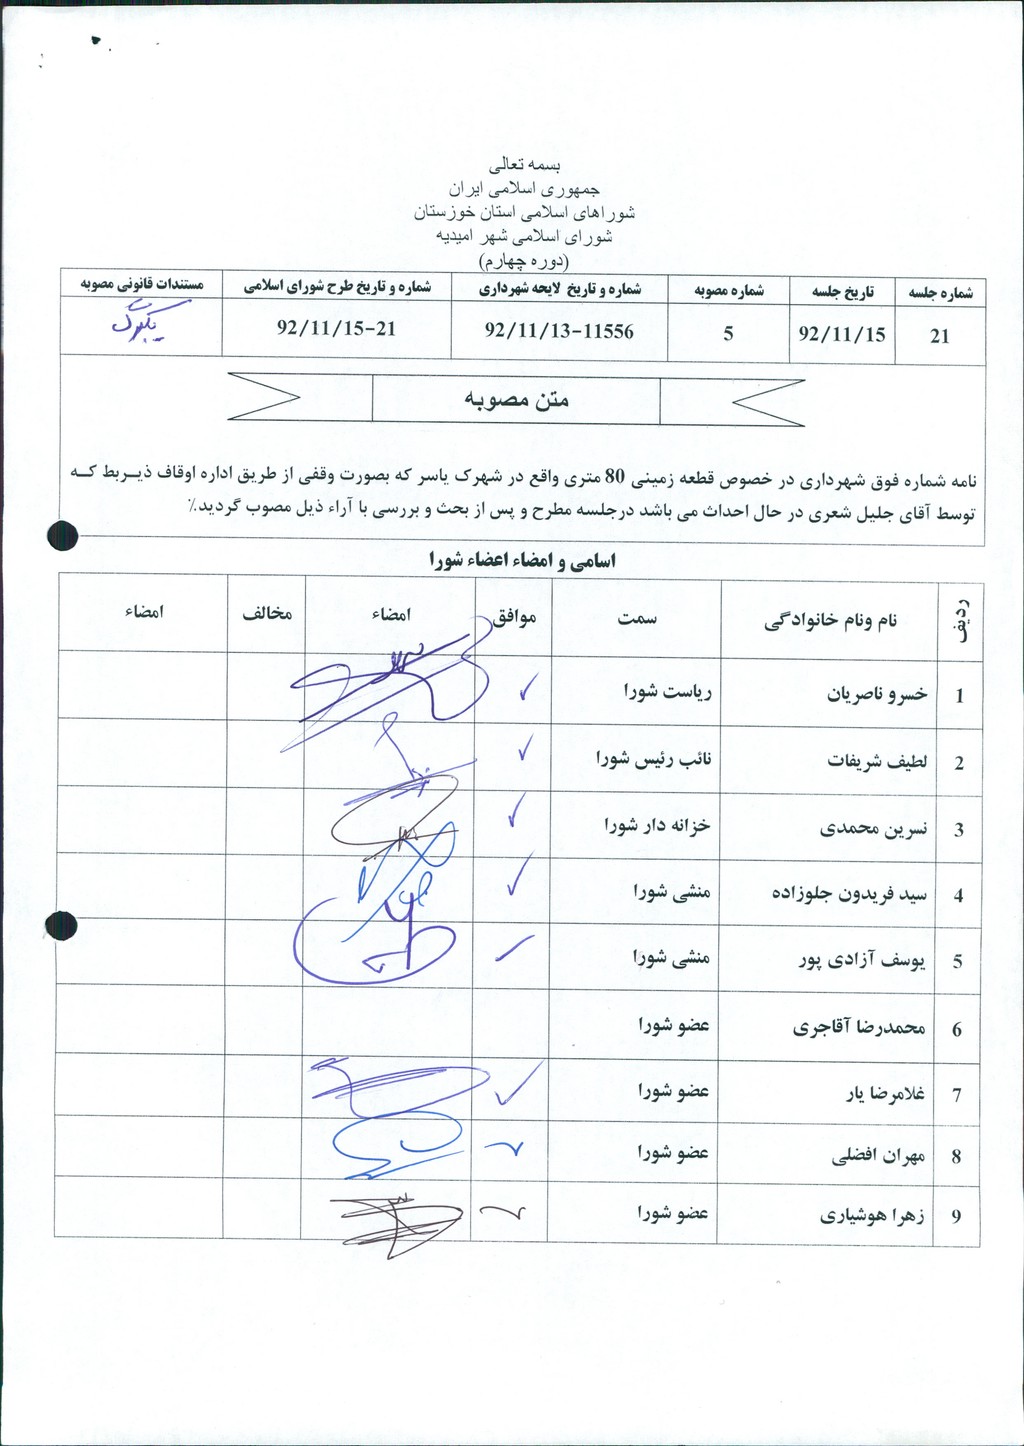 بسمه تعالی
جمهوری اسلامی ایران
شوراهای اسلامی استان خوزستان
شورای اسلامی شهر امیدیه
(دوره چهارم)
شماره جلسه تاریخ جلسه شماره مصوبه شماره و تاریخ لایحه شهرداری شماره و تاریخ طرح شورای اسلامی مستندات قانونی مصوبه
21 92/11/15 5 92/11/13-11556 92/11/15-21
متن مصوبه
نامه شماره فوق شهرداری در خصوص قطعه زمینی 80 متری واقع در شهرک یاسر که بصورت وقفی از طریق اداره اوقاف ذیـربط کـه
توسط آقای جلیل شعری در حال احداث می باشد درجلسه مطرح و پس از بحث و بررسی با آراء ذیل مصوب گردید.٪
اسامی و امضاء اعضاء شورا
ردیف نام ونام خانوادگی سمت موافق امضاء مخالف امضاء
1 خسرو ناصریان ریاست شورا ✓
2 لطیف شریفات نائب رئیس شورا ✓
3 نسرین محمدی خزانه دار شورا ✓
4 سید فریدون جلوزاده منشی شورا ✓
5 یوسف آزادی پور منشی شورا ✓
6 محمدرضا آقاجری عضو شورا
7 غلامرضا یار عضو شورا ✓
8 مهران افضلی عضو شورا ✓
9 زهرا هوشیاری عضو شورا ✓